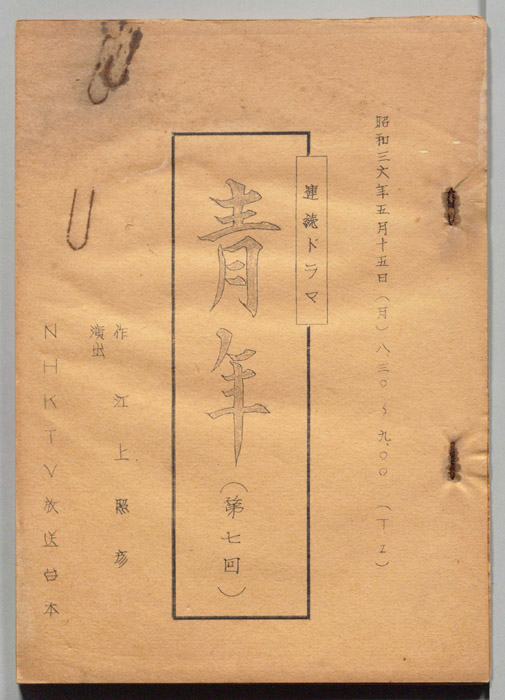 昭和三六年五月十五日（月）八、三〇～九、〇〇
連続ドラマ
青年（第七回）
作 江上照彦
演出
NHKTV放送台本